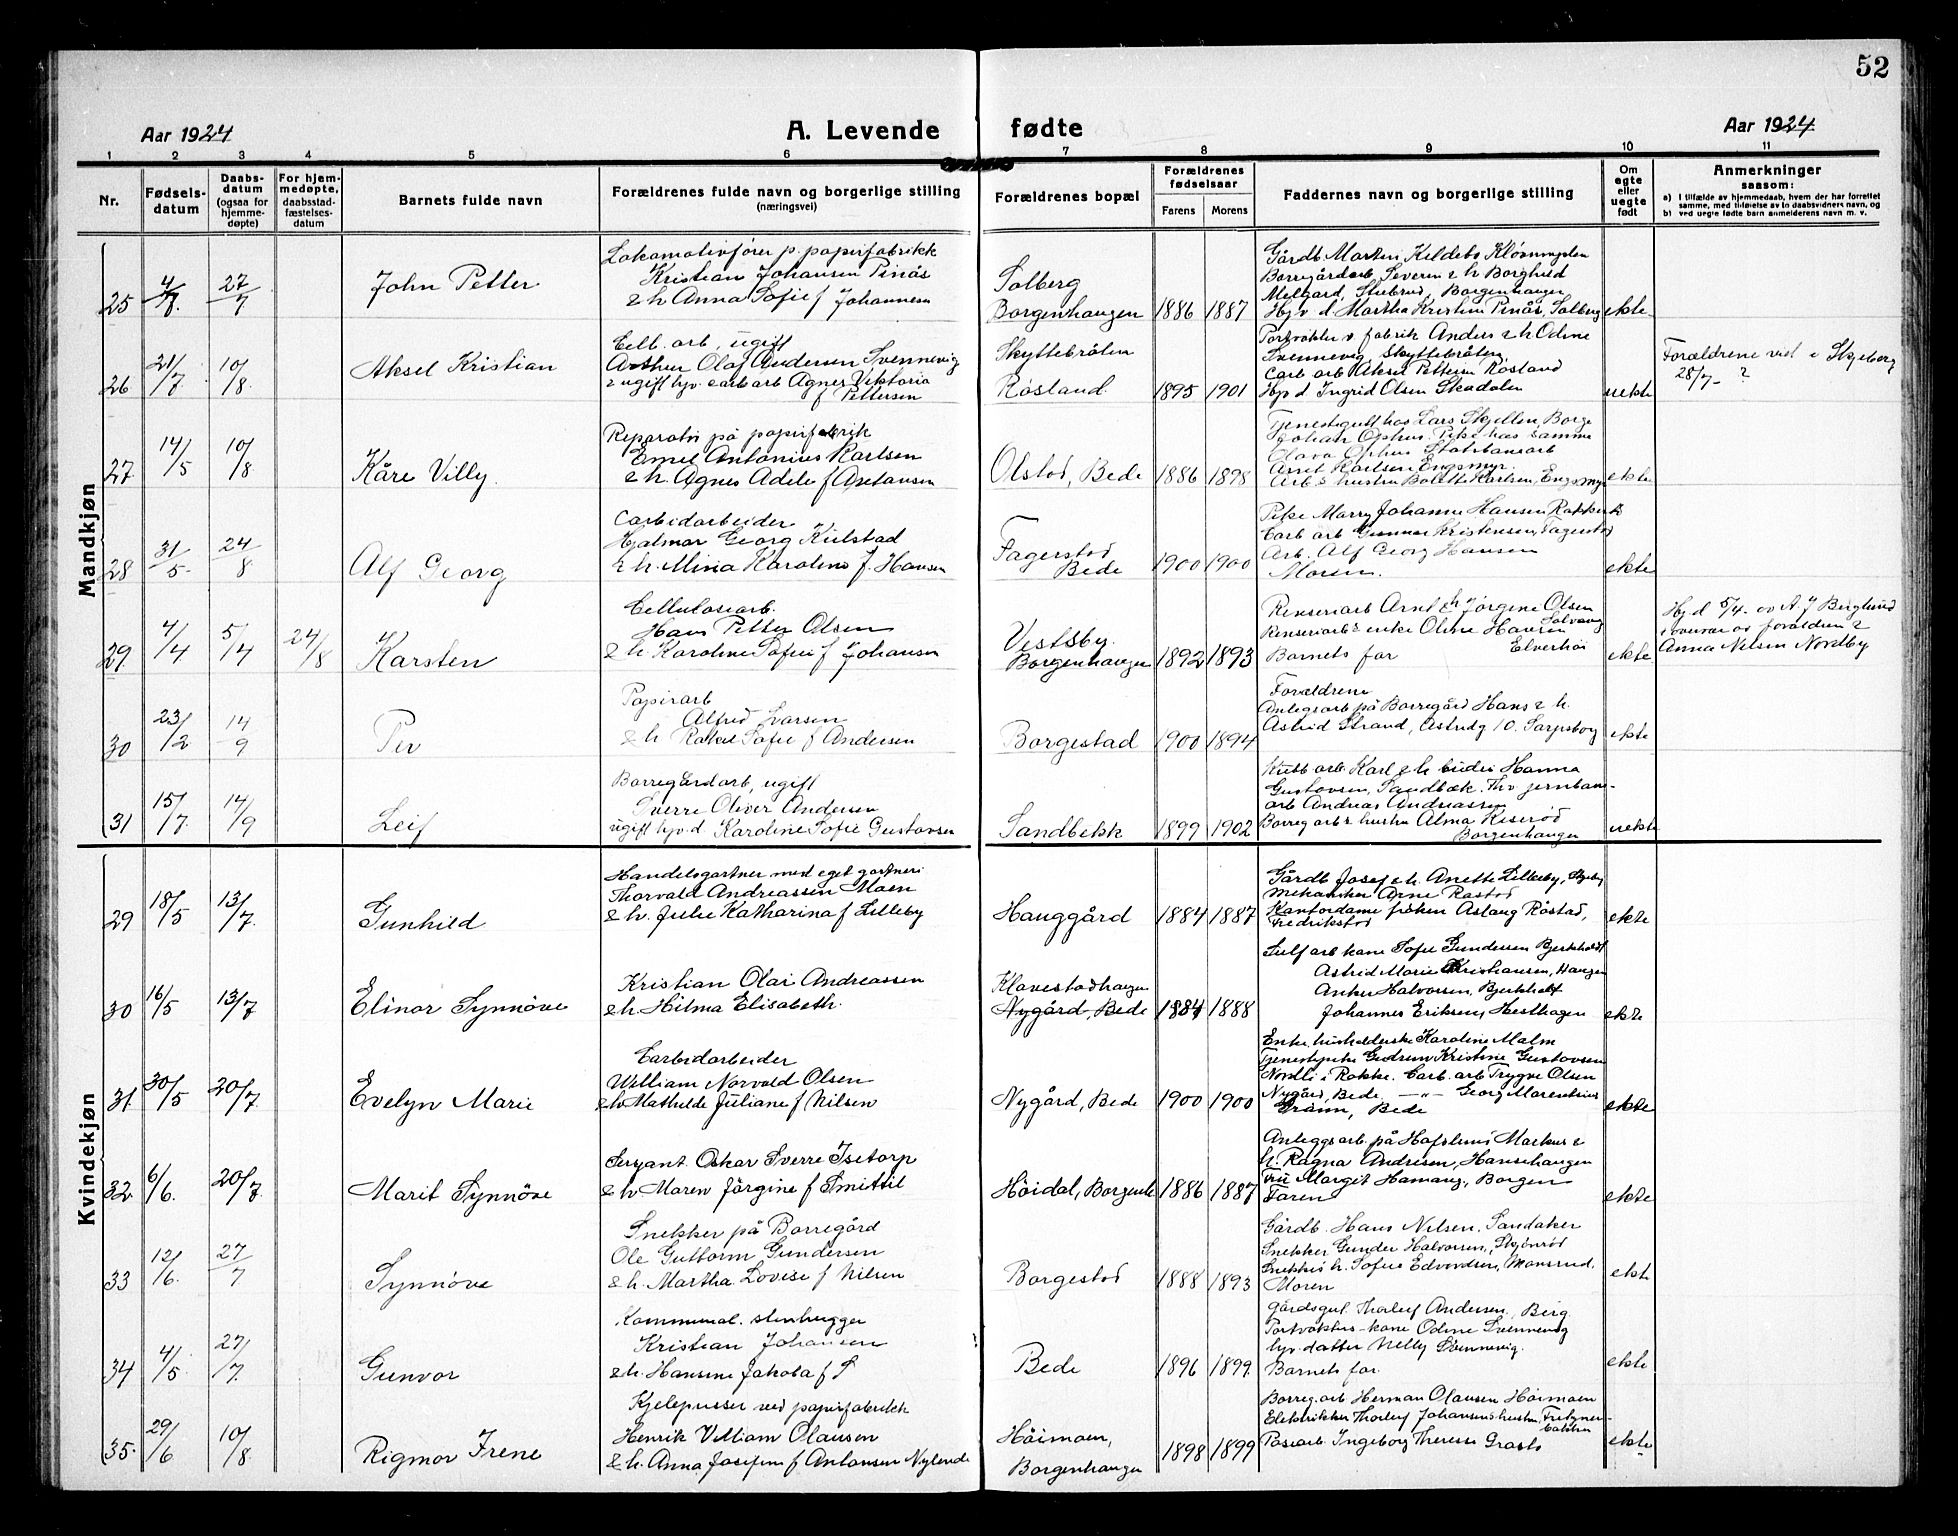 52
Aar 1924
A. Levende fødte
Aar 1924
1 2 3 4 5 6 7 8 9 10 11
Nr.
Fødselsdatum
Daabsdatum (ogsaa for hjemmedøpte)
For hjemmedøpte, daabsstadfæstelsesdatum
Barnets fulde navn
Forældrenes fulde navn og borgerlige stilling
(næringsvei)
Forældrenes bopæl
Forældrenes fødselsaar
Farens Morens
Faddernes navn og borgerlige stilling
Om egte eller uegte født
Anmerkninger
saasom:
a) I tilfælde av hjemmedaab, hvem der har forrettet
samme, med tilføielse av to daabsvidners navn, og
b) ved uegte fødte barn anmelderens navn m. v.
Mandkjøn
25 27/7 John Petter
Lokomotivfører p. papirfabrikk
Kristian Johansen Pinås
& h Anna Sofie f Johannesen
Solberg
Borgenhaugen 1886 1887
Melgard, Borgenhaugen
Hjv. d. Martha Kristine Pinås, Solberg
ekte
26 21/7 10/8 Aksel Kristian
Cell. arb, ugift
Arthur Olaf Andersen Svennevig
& ugift hjv. carb arb Agnes Viktoria
f Pettersen
Skyttebråten
Röstand 1895 1901
Portvakter v. fabrik Anders & h Odine
Svennevig, Skyttebråten
Carb arb Aksel Pettersen Röstand
Hjv d Ingrid Olsen Skadalen
uekte
Forældrene viet i Skjeberg
28/7- ?
27 14/5 10/8 Kåre Villy.
Reparatör på papirfabrik
Emil Antonius Karlsen
& h. Agnes Adele f Axelansen
Olstad, Bede 1886 1898
Tjenestegutt hos Lars Skjellen, Borge
Johan Ophus. Pike hos samme
Olava Ophus Statsbanearb
Arnt Karlsen Engsmyr.
Arb & hustru Bolette Karlsen, Engsmyr
ekte
28 31/5 24/8 Alf Georg
Carbidarbeider
Hjalmar Georg Kulstad
& h. Mina Karoline f. Hansen
Fagerstad
Bede 1900 1900
Pike Marry Johanne Hansen
Carb arb Gunnar Kristensen, Fagerstad
Arb. Alf Georg Hansen
Moren.
ekte
29 4/4 5/4 24/8 Karsten
Cellulosearb.
Hans Petter Olsen
& h. Karoline Sofie f Johansen
Vestsby.
Borgenhaugen 1892 1893
Renseriarb Arnt & h Jörgine Olsen
Solvang
Renseriarb & enke Oline Hansen
Barnets far Elverhöi
ekte
Hj.d 5/4. av A. J Berglund
i overvær av foreldren &
Anna Nilsen Nordby
30 23/2 14/9 Per
Papirarb
Alfred Larsen
& h Rakel Sofie f Andersen
Borgestad 1900 1894
Forældrene
Anlegsarb på Borregård Hans & h.
Astrid Strand, Astridg 10. Sarpsborg
ekte
31 15/7 14/9 Leif
Borregårdarb, ugift
Sverre Oliver Andersen
ugift hjv. d. Karoline Sofie Gustavsen
Sandbekk 1899 1902
arb Karl & h Hanna
Gustavsen, Sandbæk.
arb Andreas Andreassen
Borreg arb & hustru Alma Kiseröd
Borgenhaugen
uekte
Kvindekjøn
29 18/5 13/7 Gunhild
Handelsgartner med eget gartneri
Thorvald Andreassen Moen
& h. Julie Katharina f Lilleby
Hauggård 1884 1887
Gårdb Josef & h. Anette Lilleby, Skjeberg
Mekaniker Arne Rastad
Kontordame fröken Aslaug Röstad,
Fredrikstad
ekte
30 16/5 13/7 Elinor Synnöve
Kristian Olai Andreassen
& h. Hilma Elisabeth.
Klavestadhaugen
Nygård, Bede 1884 1888
Sulf arb kone Sofie Gundersen Bjerkholt
Astrid Marie Kristiansen, Haugen
Anker Halvorsen, Bjerkholt
Johannes Eriksen, Hesthagen
ekte
31 30/5 20/7 Evelyn Marie
Carbidarbeider
William Norvald Olsen
& h Mathilde Juliane f Nilsen
Nygård, Bede 1900 1900
Enke, husholderske Karoline Malm
Tjenestepike Gudrun Kristine Gustavsen
Nordli i Rokke. Carb. arb Trygve Olsen
Nygård, Bede — „ — Georg
Bede
ekte
32 6/6. 20/7 Marit Synnöve
Sersjant. Oskar Sverre Isetorp
& h Maren Jörgine f Smittil
Höidal, Borgenh 1886 1887
Anleggsarb på Hafslund Markus &
h. Ragna Andresen, Hansehaugen
Fru Margit Hamang, Borgen
Faren
ekte
33 12/6. 27/7 Synnöve
Snekker på Borregård
Ole Guttorm Gundersen
& h. Martha Lovise f Nilsen
Borgestad 1888 1893
Gårdb. Hans Nilsen, Sandaker
Snekker Gunder Halvorsen, Skjönröd
Snekkers h. Sofie Edvardsen, Monsrud
Moren
ekte
34 4/5 27/7. Gunvor
Kommunal. stenhugger
Kristian Johansen
& h. Hansine Jakoba f S
Bede 1896 1899
Gårdsgut. Thorleif Andersen, Berg.
Portvakters-kone Odine Svennevig
hjv. datter Nelly Svennevig.
Barnets far.
ekte
35. 29/6 10/8 Rigmor Irene
Kjelepusser ved papirfabrikk
Henrik Villiam Olausen
& h. Anna Josefine f Antonsen Nylende
Höimoen,
Borgenhaugen 1898 1899
Borreg. arb Herman Olausen Höimoen
Elektrikker Thorleif Johansens hustru,
Poscarb. Ingeborg Therese
ekte